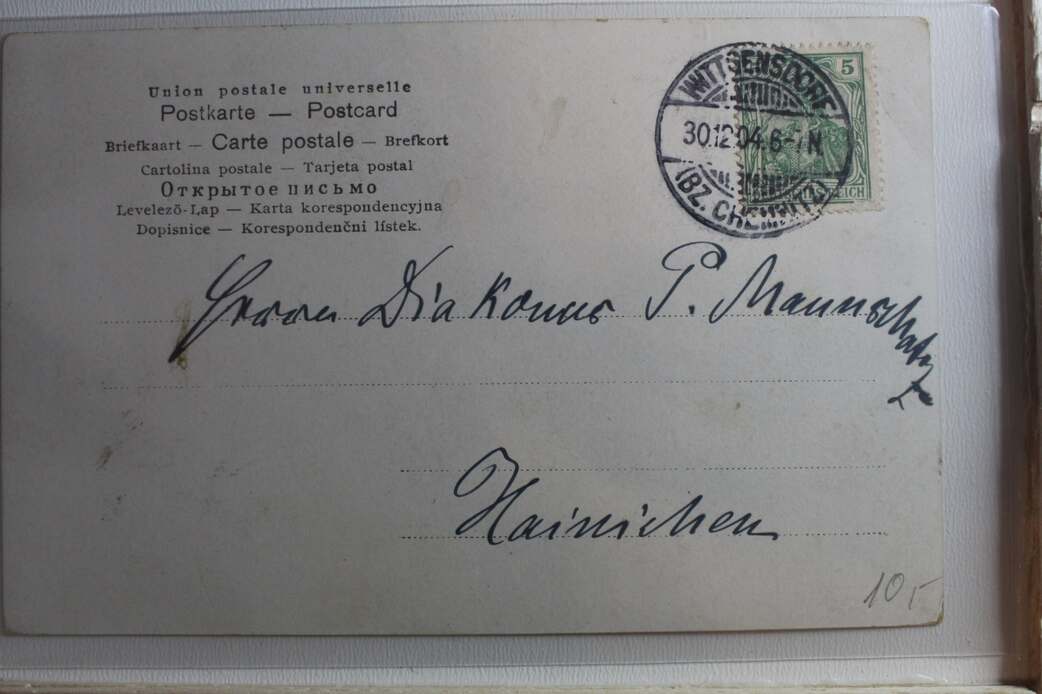 Union postale universelle
Postkarte — Postcard
Briefkaart — Carte postale — Brefkort
Cartolina postale — Tarjeta postal
Открытое письмо
Levelező-Lap — Karta korespondencyjna
Dopisnice — Korespondenční lístek.
WITTGENSDORF
30.12.04. 6-7N
(BZ. CHEMNITZ)
5
REICH
Herrn Diakonus P. Mannschatz
Hainichen
10,-